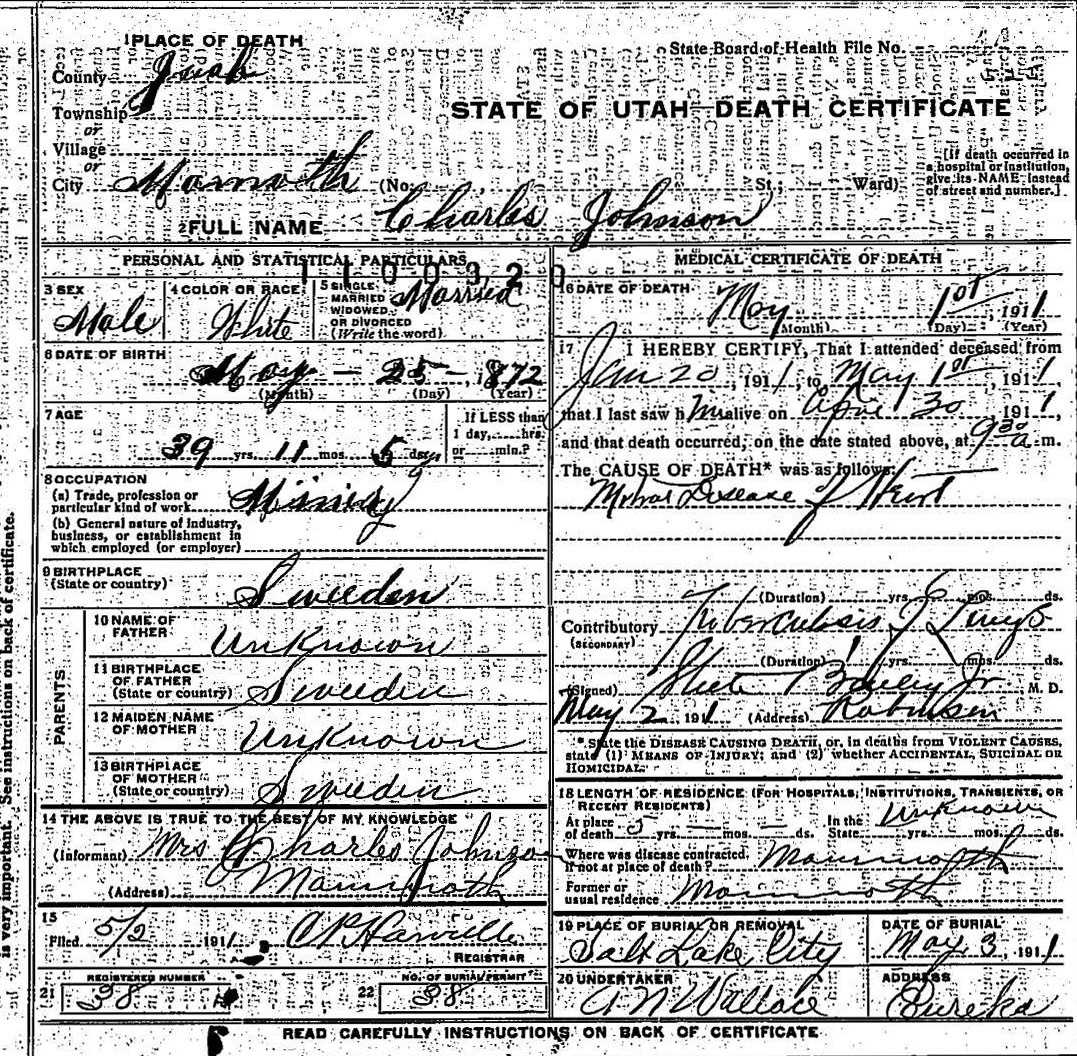 1 PLACE OF DEATH
State Board of Health File No.
County Juab
Township
or
Village
or
STATE OF UTAH—DEATH CERTIFICATE
City Mammoth (No. St.; Ward)
[If death occurred in a hospital or institution, give its NAME instead of street and number.]
2 FULL NAME Charles Johnson
PERSONAL AND STATISTICAL PARTICULARS
3 SEX Male
4 COLOR OR RACE White
5 SINGLE, MARRIED, WIDOWED, OR DIVORCED (Write the word.) Married
6 DATE OF BIRTH
May — 25 —, 1872
(Month) (Day) (Year)
7 AGE
39 yrs. 11 mos. 5 days
If LESS than
1 day,......hrs.
or......min.?
8 OCCUPATION
(a) Trade, profession or particular kind of work Mining
(b) General nature of industry,
business, or establishment in
which employed (or employer)
9 BIRTHPLACE
(State or country) Sweeden
PARENTS
10 NAME OF FATHER Unknown
11 BIRTHPLACE OF FATHER (State or country) Sweeden
12 MAIDEN NAME OF MOTHER Unknown
13 BIRTHPLACE OF MOTHER (State or country) Sweeden
14 THE ABOVE IS TRUE TO THE BEST OF MY KNOWLEDGE
(Informant) Mrs Charles Johnson
(Address) Mammoth
15
Filed 5/2 1911
REGISTRAR
REGISTERED NUMBER
21 38
NO. OF BURIAL PERMIT
22 38
MEDICAL CERTIFICATE OF DEATH
16 DATE OF DEATH
May 1st, 1911
(Month) (Day) (Year)
17 I HEREBY CERTIFY, That I attended deceased from
Jan 20, 1911, to May 1st, 1911
that I last saw him alive on April 30 1911,
and that death occurred, on the date stated above, at 9 30 a m.
The CAUSE OF DEATH* was as follows:
Mitral Disease of Heart
(Duration) yrs. mos. ds.
Contributory Tuberculosis of Lungs
(SECONDARY)
(Duration) 1 yrs. mos. ds.
(Signed) Steele Bailey Jr M. D.
May 2, 1911 (Address) Robinson
* State the DISEASE CAUSING DEATH, or, in deaths from VIOLENT CAUSES,
state (1) MEANS OF INJURY; and (2) whether ACCIDENTAL, SUICIDAL OR
HOMICIDAL.
18 LENGTH OF RESIDENCE (FOR HOSPITALS, INSTITUTIONS, TRANSIENTS, OR
RECENT RESIDENTS)
At place of death 5 yrs. — mos. — ds. In the State Unknown yrs. mos. ds.
Where was disease contracted,
if not at place of death? Mammoth
Former or
usual residence Mammoth
19 PLACE OF BURIAL OR REMOVAL
Salt Lake City
DATE OF BURIAL
May 3, 1911
20 UNDERTAKER
A N Wallace
ADDRESS
Eureka
READ CAREFULLY INSTRUCTIONS ON BACK OF CERTIFICATE
is very important. See instructions on back of certificate.